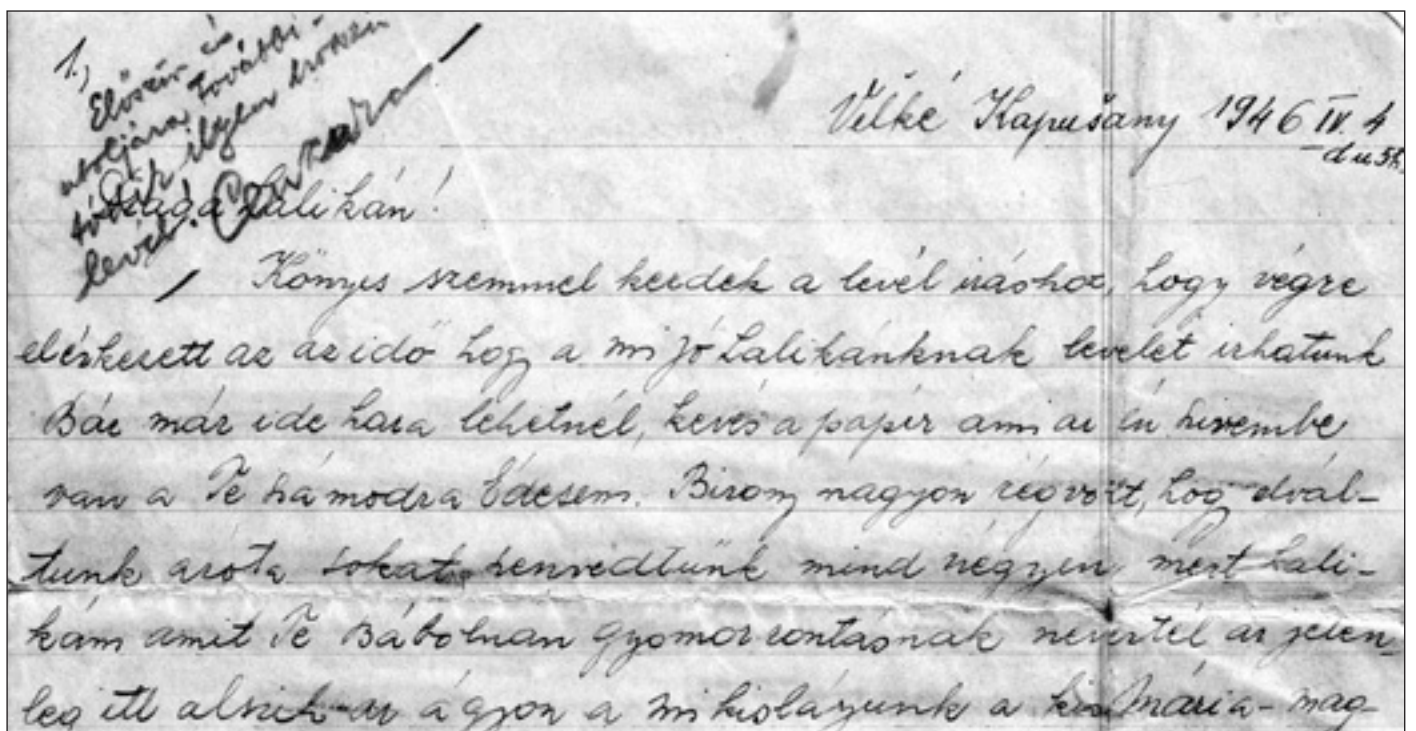 1.,
Először és
utoljára további-
ilyen
levél!
Velké Kapušany 1946 IV. 4
du 5h.
Drága Lalikán!
Könyes szemmel kezdek a levél iráshoz, hogy végre
elérkezett az az idő hogy a mi jó Lalikánknak levelet irhatunk
Bár már ide haza lehetnél, kevés a papir ami az én szivembe
van a Te számodra Édesem. Bizony nagyon rég vólt, hog elvál-
tunk azóta sokat szenvedtünk mind négyen mert Lali-
kám amit Te Bábolnán gyomor rontásnak neveztél az jelen-
leg itt alszik az ágyon a mi kislányunk a kis Mária-mag-